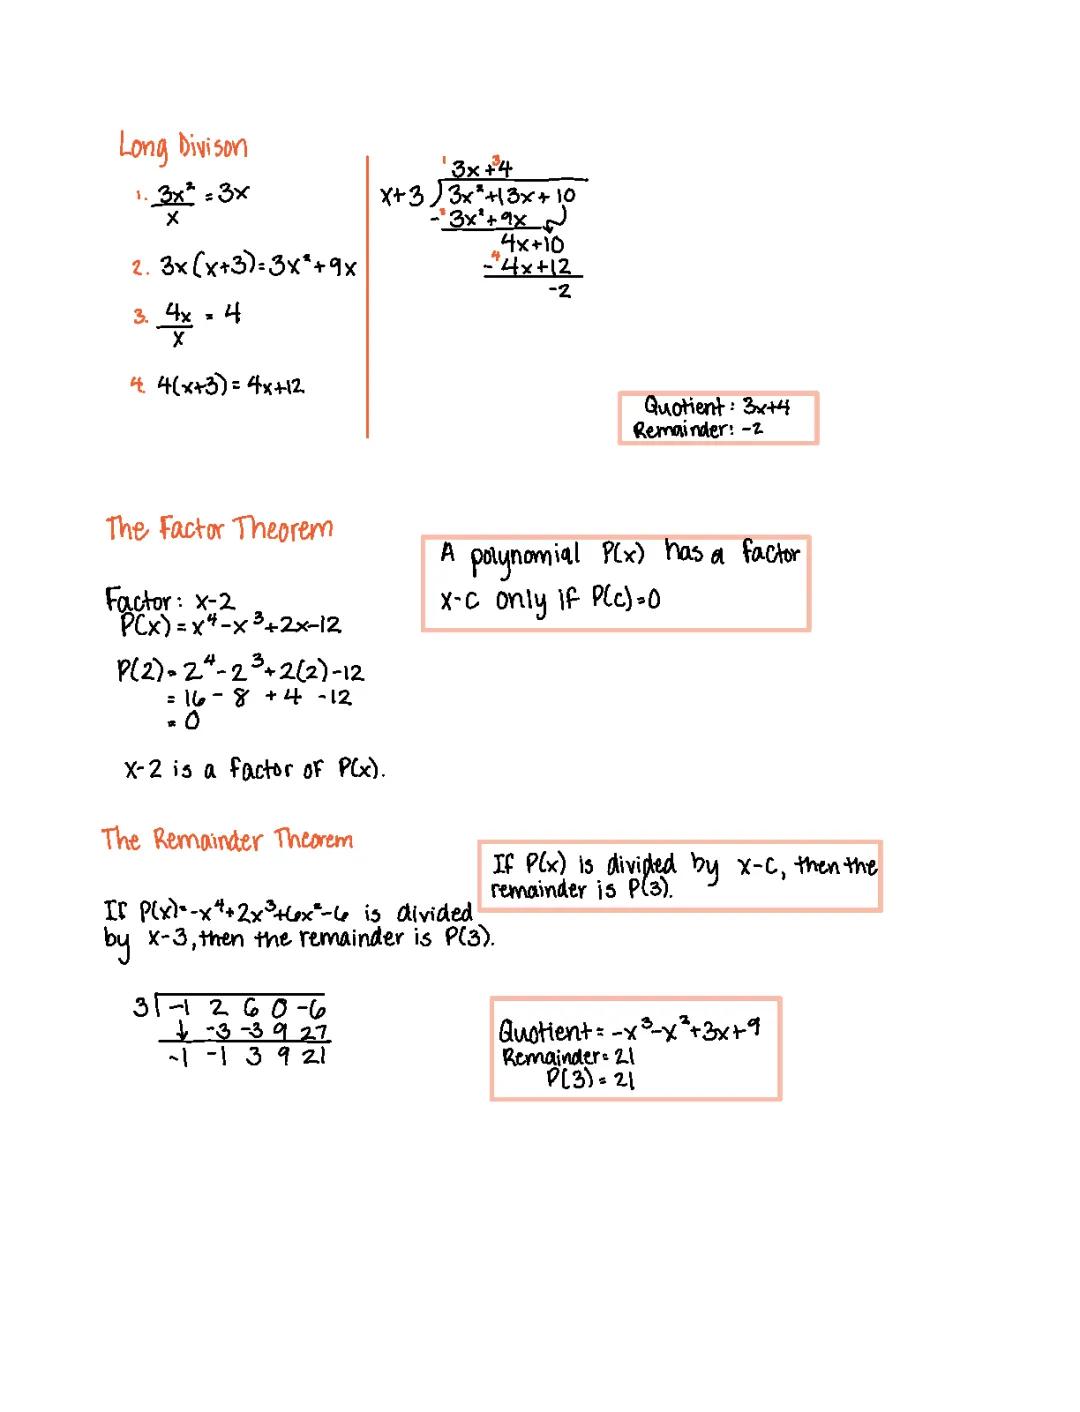 Long Divison
1. 3x²/x = 3x
2. 3x(x+3)=3x²+9x
3. 4x/x = 4
4. 4(x+3)=4x+12
1 3
3x+4
x+3 ) 3x²+13x+10
-² 3x²+9x
4x+10
-⁴ 4x+12
-2
Quotient: 3x+4
Remainder: -2
The Factor Theorem
A polynomial P(x) has a factor
x-c only if P(c)=0
Factor: x-2
P(x)=x⁴-x³+2x-12
P(2)=2⁴-2³+2(2)-12
= 16 - 8 + 4 - 12
= 0
x-2 is a factor of P(x).
The Remainder Theorem
If P(x) is divided by x-c, then the
remainder is P(3).
If P(x)=-x⁴+2x³+6x²-6 is divided
by x-3, then the remainder is P(3).
3 -1 2 6 0 -6
↓ -3 -3 9 27
-1 -1 3 9 21
Quotient = -x³-x²+3x+9
Remainder = 21
P(3) = 21